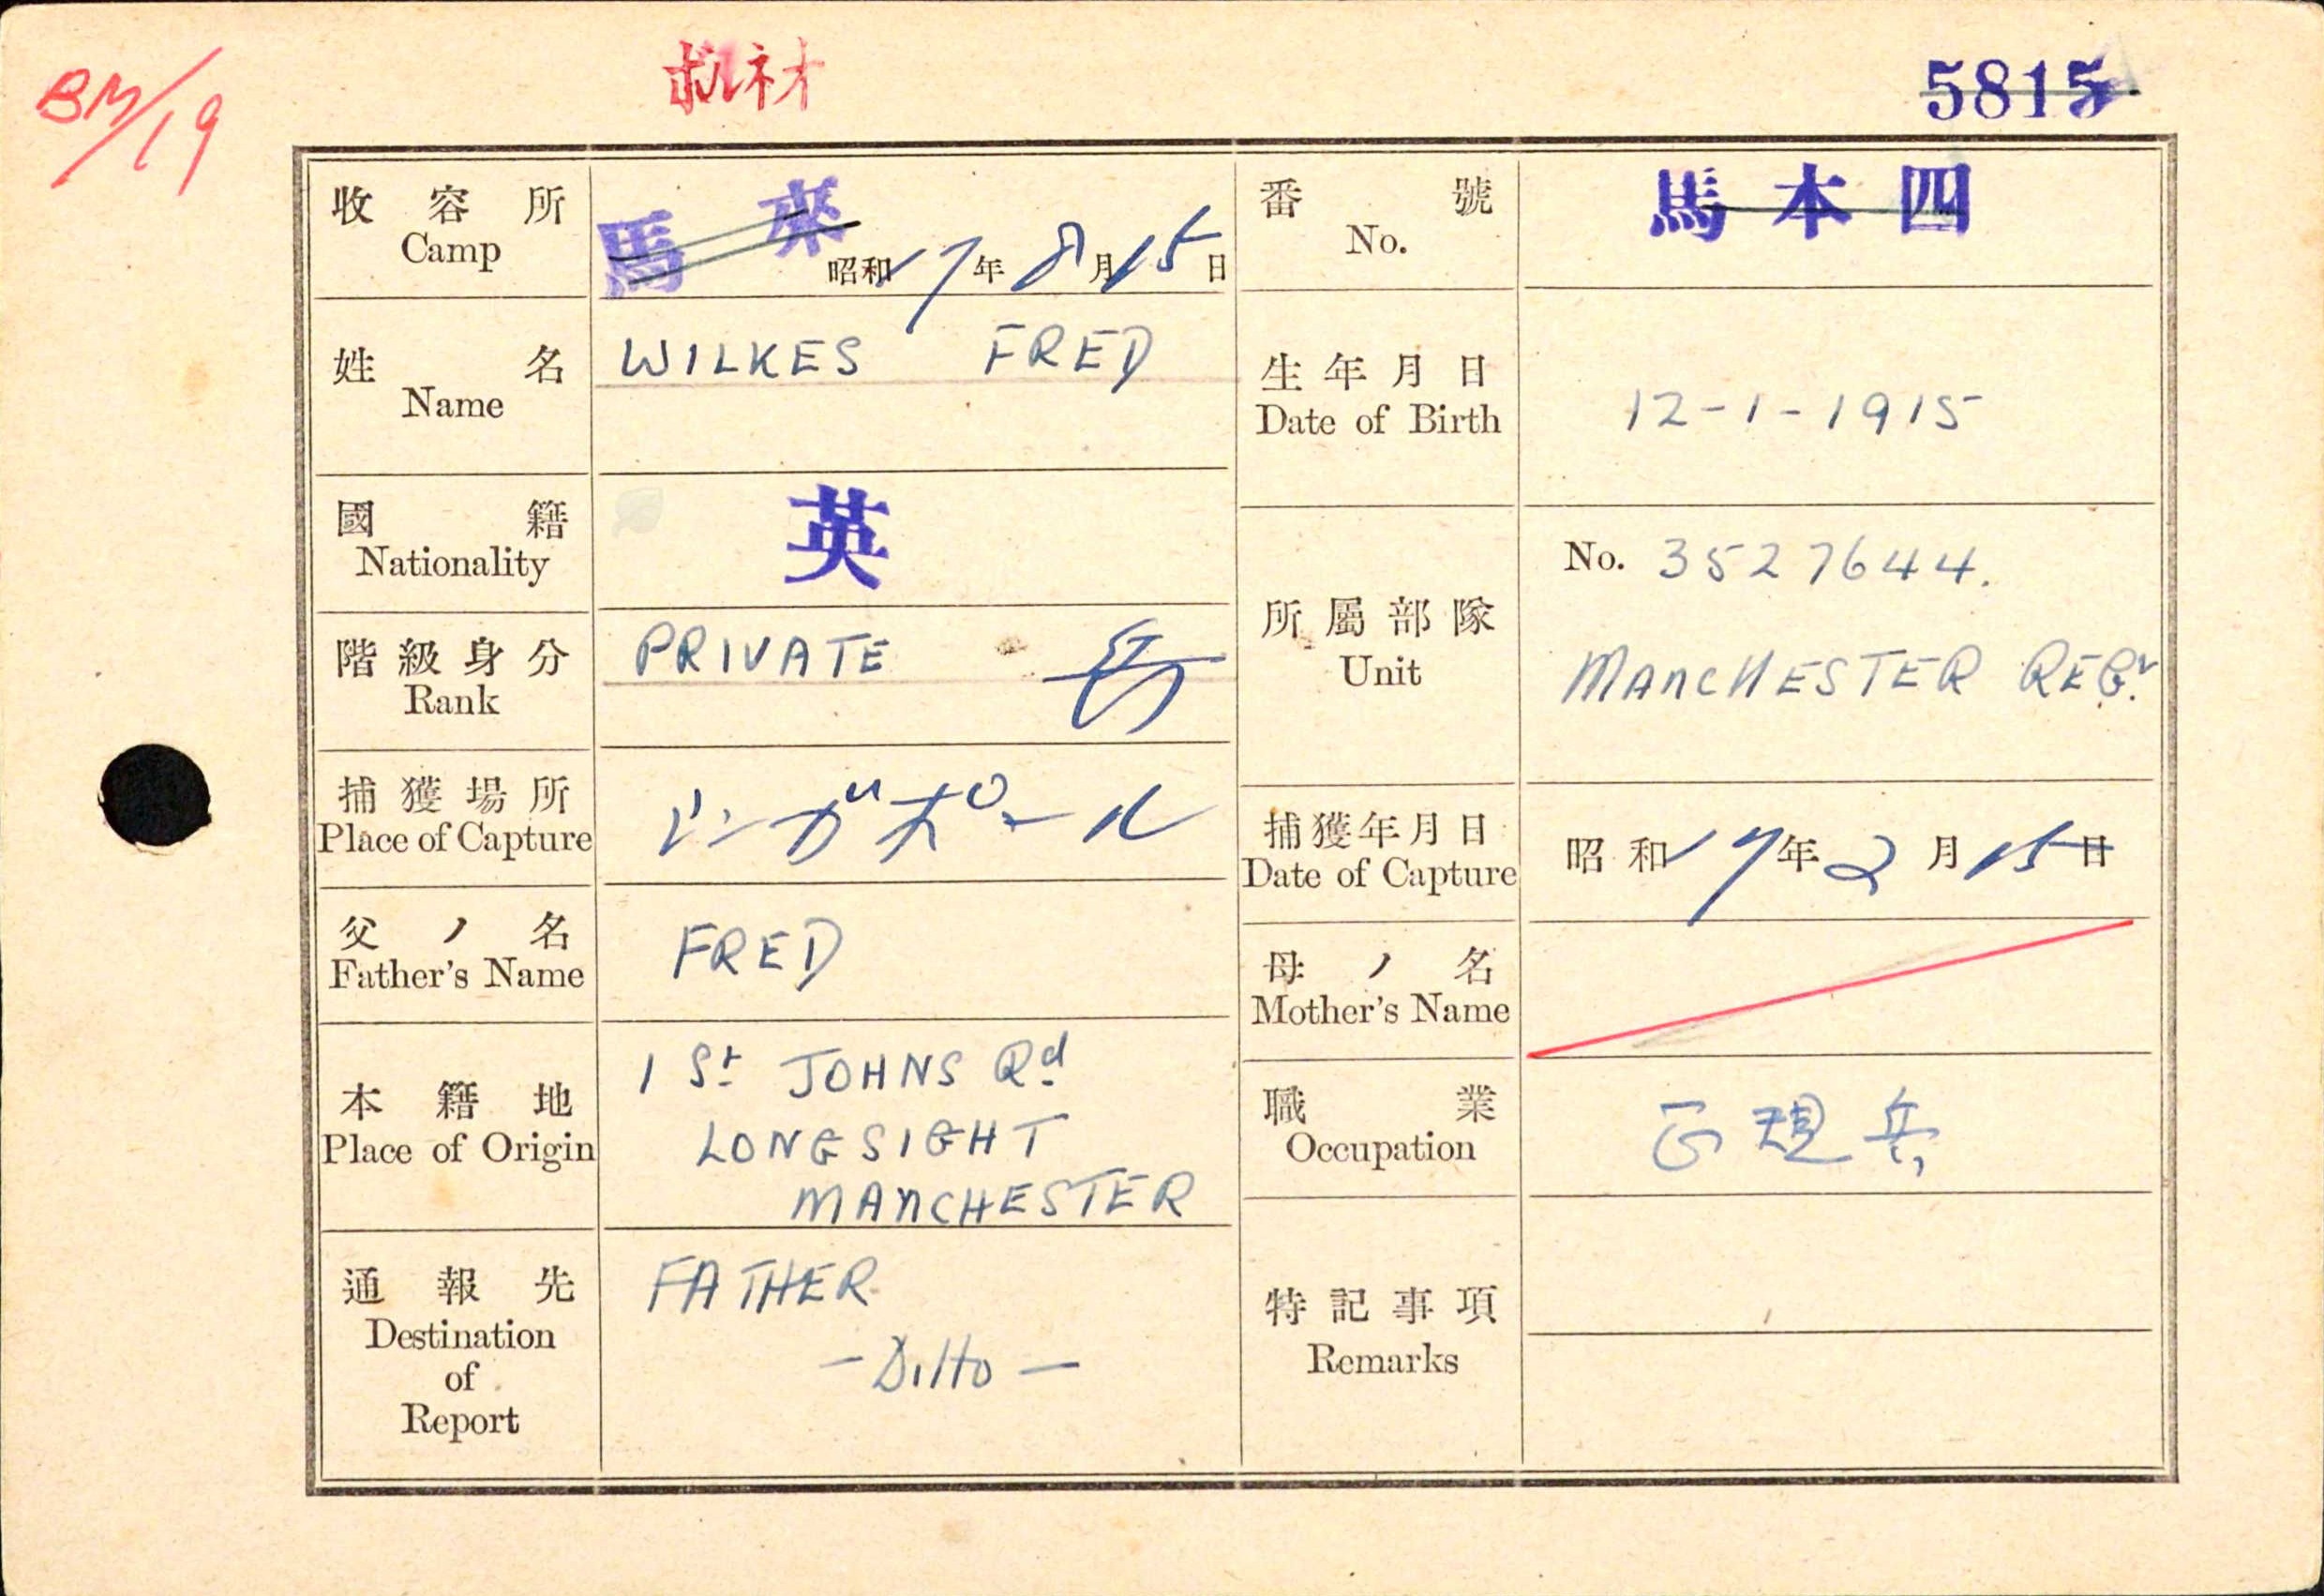 BM/19
ボルネオ
5815
收容所
Camp
馬來
昭和17年8月15日
番號
No.
馬本四
姓名
Name
WILKES FRED
生年月日
Date of Birth
12-1-1915
國籍
Nationality
英
階級身分
Rank
PRIVATE 兵
所屬部隊
Unit
No. 3527644.
MANCHESTER REGT.
捕獲場所
Place of Capture
シンガポール
捕獲年月日
Date of Capture
昭和17年2月15日
父ノ名
Father's Name
FRED
母ノ名
Mother's Name
本籍地
Place of Origin
1 St JOHNS Rd
LONGSIGHT
MANCHESTER
職業
Occupation
正規兵
通報先
Destination
of
Report
FATHER
-Ditto-
特記事項
Remarks